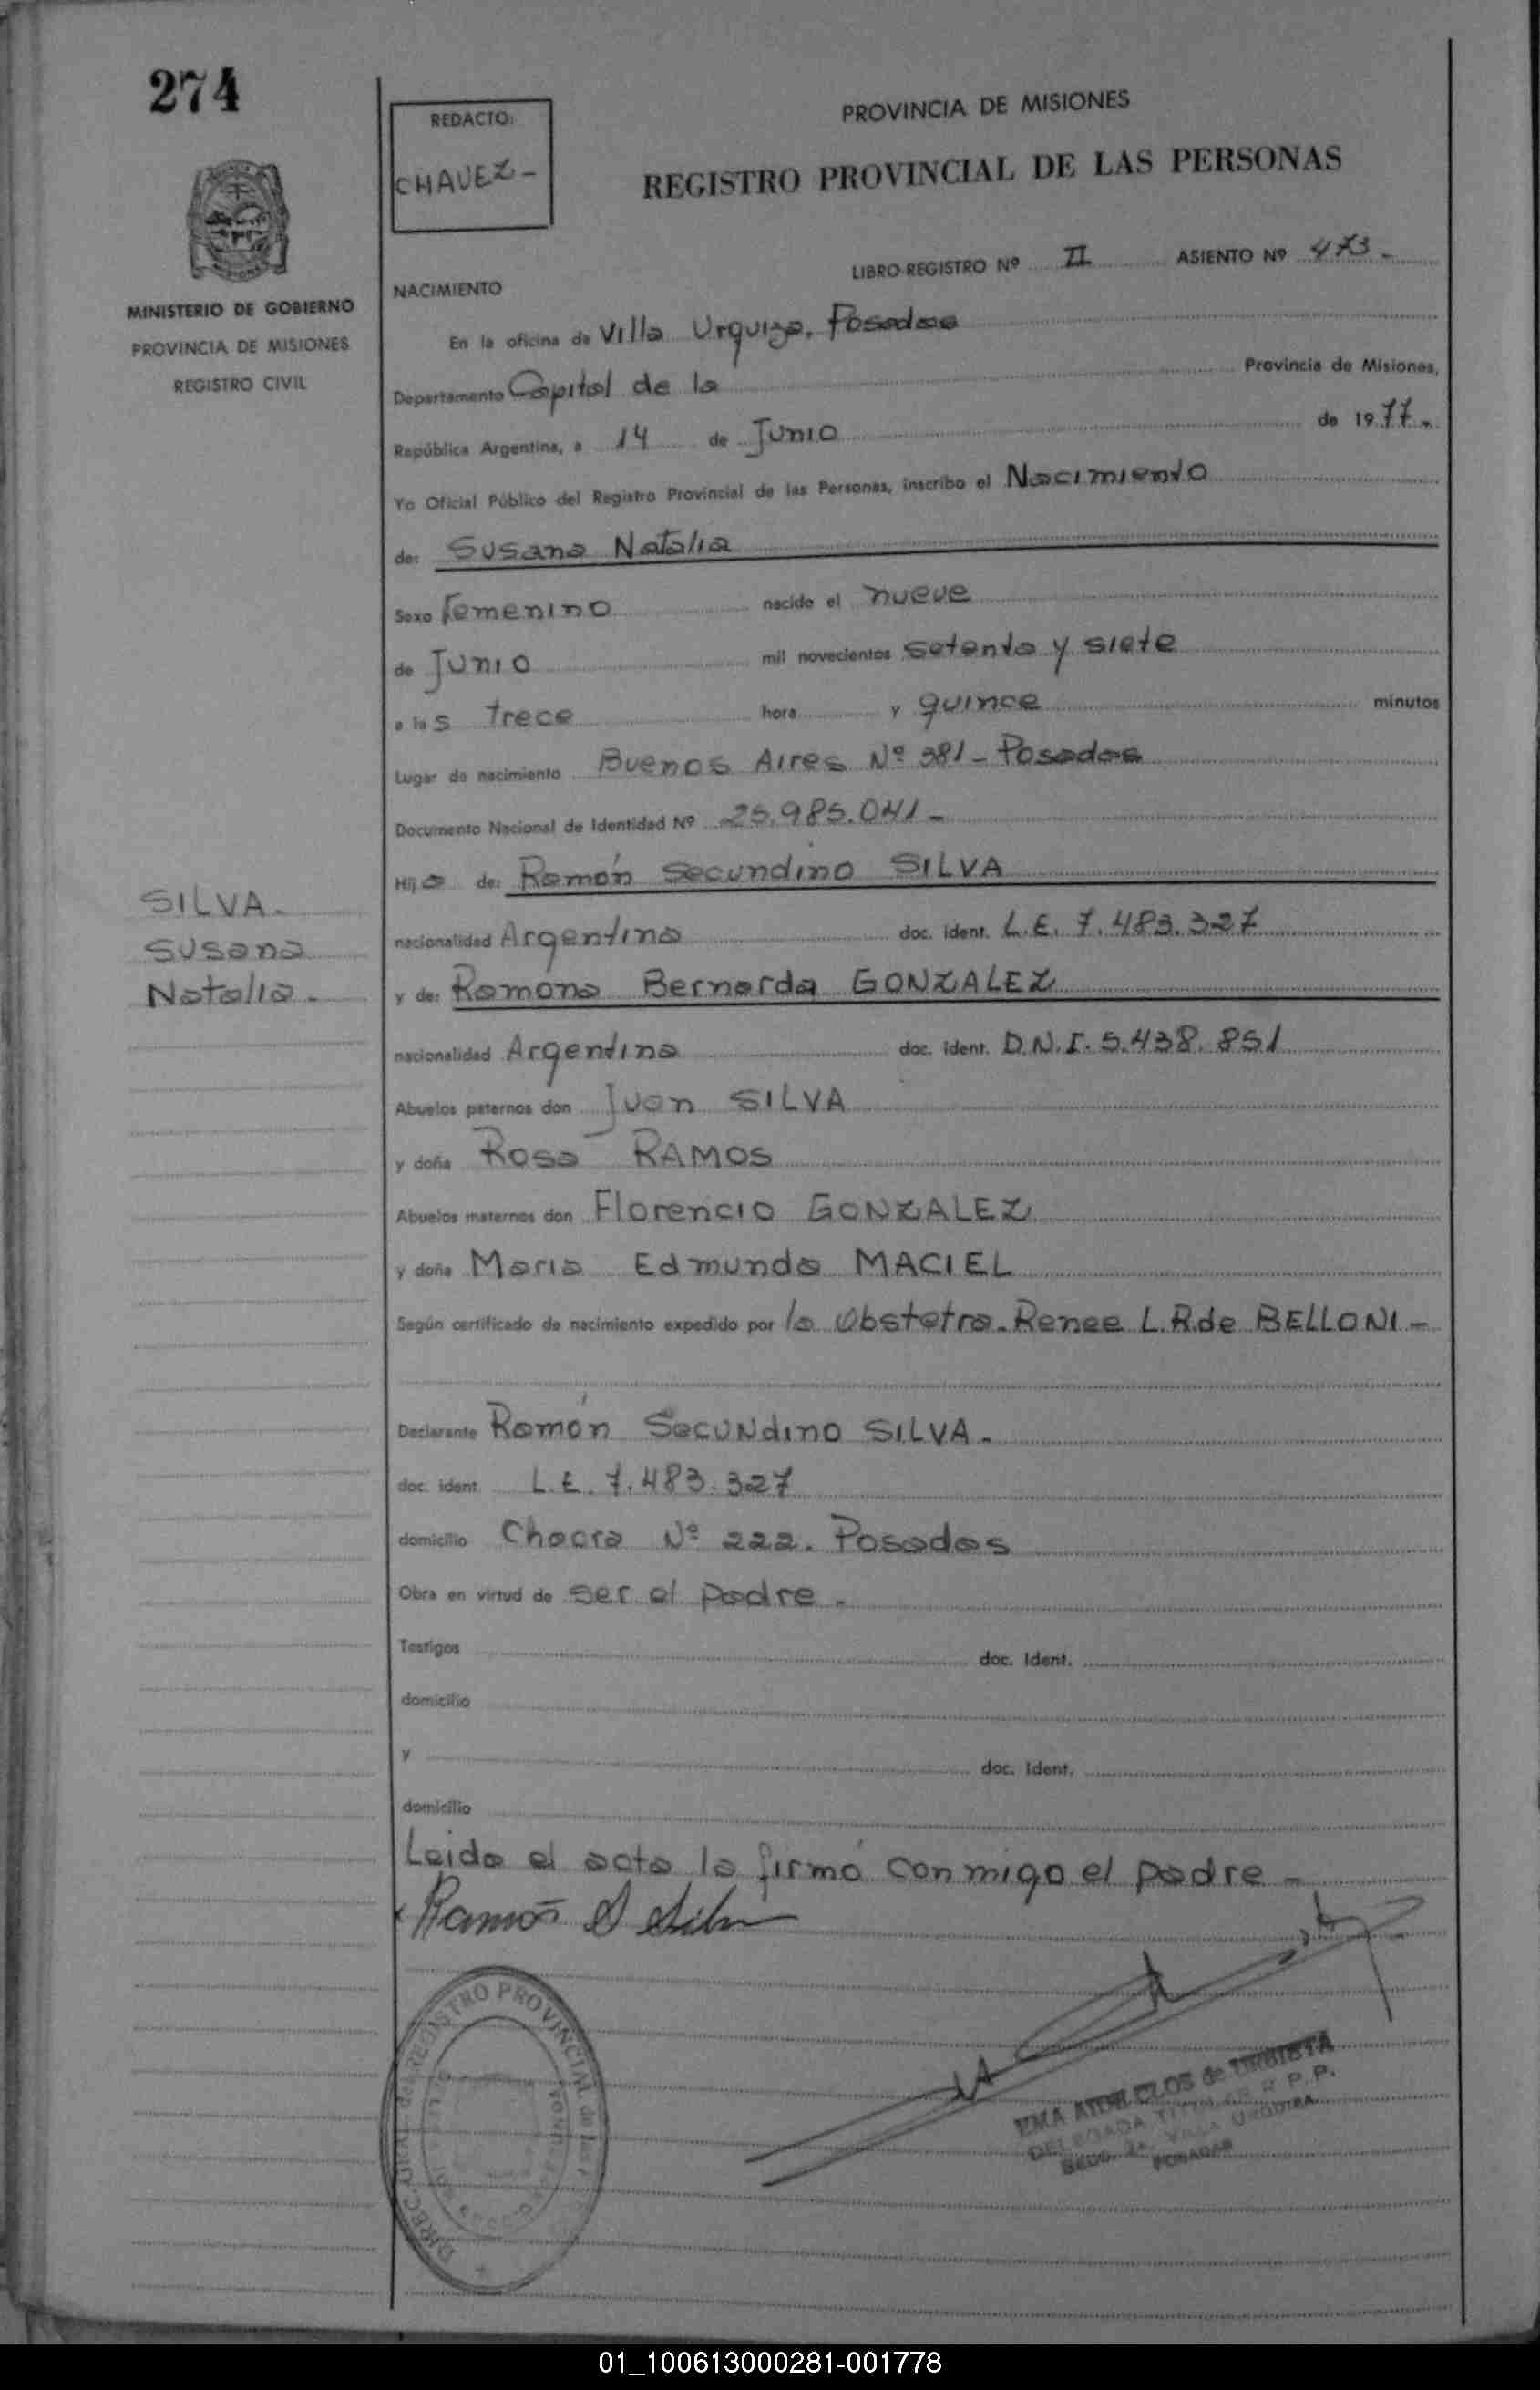 274
REDACTO:
CHAVEZ-
PROVINCIA DE MISIONES
REGISTRO PROVINCIAL DE LAS PERSONAS
MINISTERIO DE GOBIERNO
PROVINCIA DE MISIONES
REGISTRO CIVIL
LIBRO-REGISTRO Nº II ASIENTO Nº 473-
NACIMIENTO
En la oficina de Villa Urquiza, Posadas
Departamento Capital de la Provincia de Misiones,
República Argentina, a 14 de Junio de 1977-
Yo Oficial Público del Registro Provincial de las Personas, inscribo el Nacimiento
de: Susana Natalia
Sexo Femenino nacido el nueve
de Junio mil novecientos setenta y siete
a las trece hora y quince minutos
Lugar de nacimiento Buenos Aires Nº 381- Posadas
Documento Nacional de Identidad Nº 25.985.041-
Hija de: Ramón Secundino SILVA
nacionalidad Argentina doc. ident. L.E. 7.483.327
y de: Ramona Bernarda GONZALEZ
nacionalidad Argentina doc. ident. D.N.I. 5.438.851
SILVA-
Susana
Natalia-
Abuelos paternos don Juan SILVA
y doña Rosa RAMOS
Abuelos maternos don Florencio GONZALEZ
y doña Maria Edmunda MACIEL
Según certificado de nacimiento expedido por la Obstetra-Renee L.R.de BELLONI-
Declarante Ramón Secundino SILVA-
doc. ident. L.E. 7.483.327
domicilio Chacra Nº 222. Posadas
Obra en virtud de ser el padre-
Testigos doc. Ident.
domicilio
y doc. Ident.
domicilio
Leida el acta la firmó conmigo el padre-
Ramón S Silva
REGISTRO PROVINCIAL de las
de URBIETA
DELEGADA TITULAR R.P.P.
VILLA URQUIZA
POSADAS
01_100613000281-001778